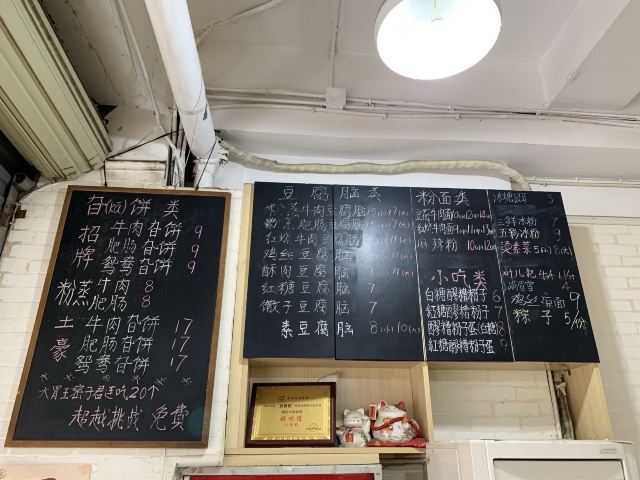 旮(ga)饼 类
招牌
牛肉旮饼 9
肥肠旮饼 9
鸳鸯旮饼 9
粉蒸
牛肉 8
肥肠 8
土豪
牛肉旮饼 17
肥肠旮饼 17
鸳鸯旮饼 17
大胃王 20个
超越挑战 免费
豆腐脑类
牛肉豆腐脑 15(小)17(大)
豆腐脑 15(小)17(大)
红烧牛肉豆腐脑 15(小)17(大)
鸡丝豆腐脑 9(小)11(大)
酥肉豆腐脑 9(小)11(大)
红糖豆腐脑 7
馓子豆腐脑 7
素豆腐脑 8(小)10(大)
粉面类
麻辣粉
小吃类
白糖醪糟粉子 6
红糖醪糟粉子 7
醪糟粉子蛋(白糖) 8
红糖醪糟粉子蛋 9
冰糖银耳 5
冰粉
五彩冰粉 9
烫素菜 5(小)8(大)
4
鸡丝 面 9
粽子 5/份